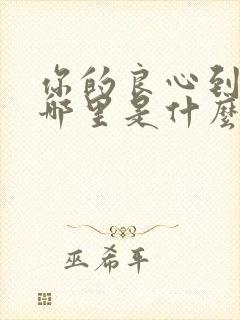 你的良心到
哪里是什麼
巫希平